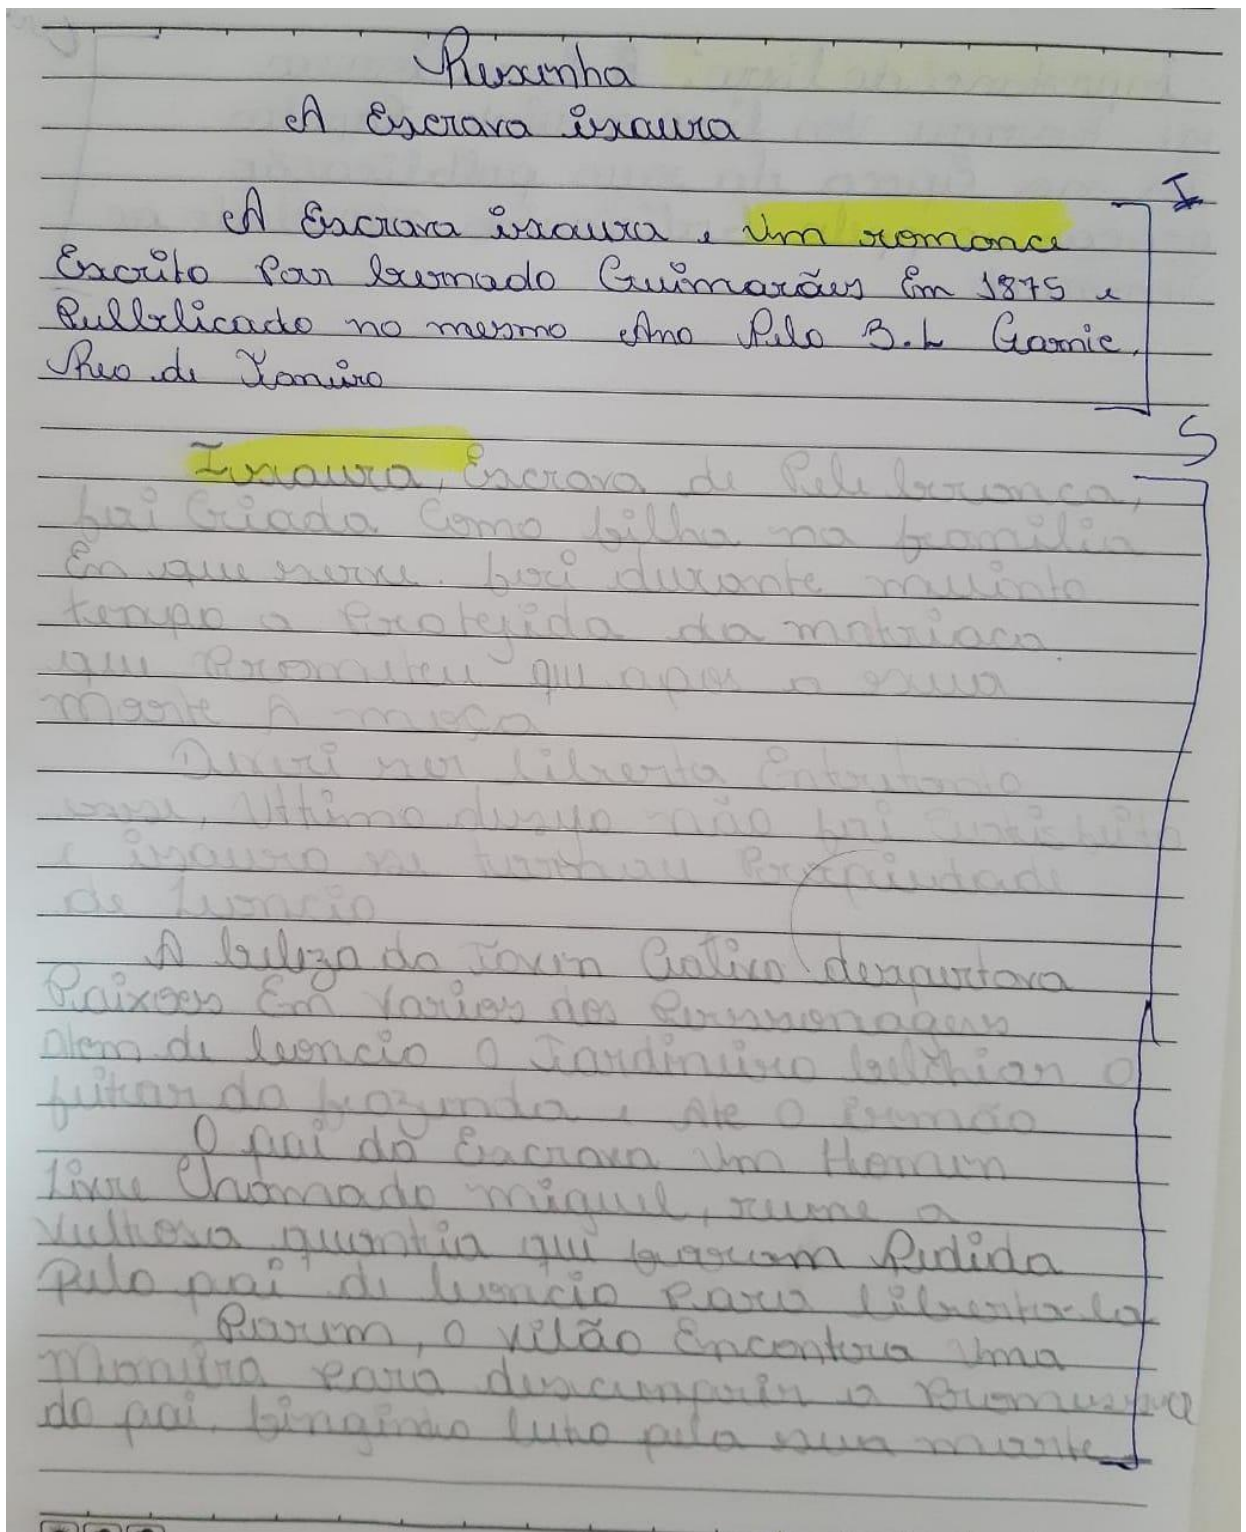 Resenha
A Escrava isaura
I
A Escrava isaura e um romance
Escrito Por bernado Guimarães Em 1875 e
Publicado no mesmo Ano Pelo B.L Garnie,
Reo de Janeiro
S
Isaura, Escrava de Pele branca,
foi Criada Como filha na familia
Em que serve. foi durante muinto
tempo a Protejida da matriaca
que Prometeu que apos a sua
morte A moça
Deveri ser liberta Entretanto
esse, Ultimo desejo não foi
e isaura se tornou Propiedade
de Leoncio
A beleza da Jovem Cativa despertava
Paixoes Em Varios dos Personagens
Alem de leoncio O Jardineiro belchior O
feitor da fazenda e Ate O irmão
O pai da Escrava Um Homem
Livre Chamado miguel, reune a
Vultosa quantia que Pedida
Pelo pai de leoncio Para liberta-la
Porem, O vilão Encontra Uma
Maneira Para descumprir a Promessa
do pai, fingindo luto pela sua morte